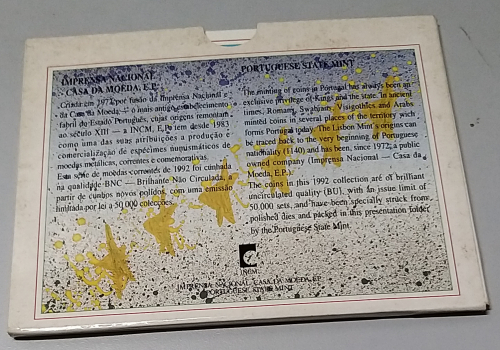 IMPRENSA NACIONAL
- CASA DA MOEDA, E.P.
Criada em 1972 por fusão da Imprensa Nacional e
da Casa da Moeda, — o mais antigo estabelecimento
fabril do Estado Português, cujas origens remontam
ao século XIII — a INCM, E.P. tem desde 1983
como uma das suas atribuições a produção e
comercialização de espécies numismáticos de
moedas metálicas, correntes e comemorativas.
Esta série de moedas correntes de 1992 foi cunhada
na qualidade BNC — Brilhante Não Circulada, a
partir de cunhos novos polidos, com uma emissão
limitada por lei a 50 000 colecções.
PORTUGUESE STATE MINT
The minting of coins in Portugal has always been an
exclusive privilege of Kings and the state. In ancient
times, Romans, Swabians, Visigothics and Arabs
minted coins in several places of the territory wich
forms Portugal today. The Lisbon Mint's origins can
be traced back to the very beginning of Portuguese
nationality (1140) and has been, since 1972, a public
owned company (Imprensa Nacional — Casa da
Moeda, E.P.).
The coins in this 1992 collection are of brilliant
uncirculated quality (BU), with an issue limit of
50.000 sets, and have been specially struck from
polished dies and packed in this presentation folder
by the Portuguese State Mint.
INCM
IMPRENSA NACIONAL-CASA DA MOEDA, E.P.
PORTUGUESE STATE MINT